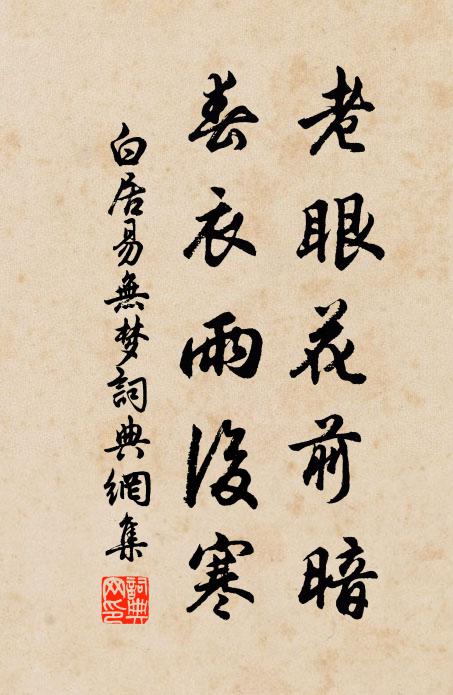 老眼花前暗
春衣雨後寒
白居易無梦詞典網集
詞典网印